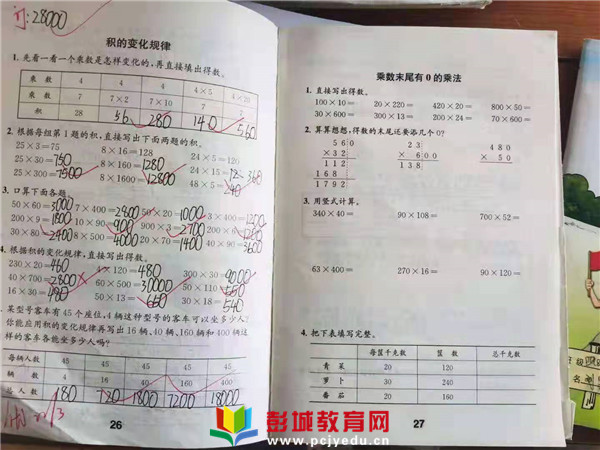 可:28000
积的变化规律
1. 先看一看一个乘数是怎样变化的,再直接填出得数。
乘数 4 4 4 4×5 4×20
乘数 7 7×2 7×10 7 7
积 28 56 280 140 560
2. 根据每组第 1 题的积,直接写出下面两题的积。
25×3=75 8×16=128 24×5=120
25×30=750 8×160=1280 24×15=360
25×300=7500 8×1600=12800 48×5=240
3. 口算下面各题。
50×60=3000 7×400=2800 50×20=1000 3×400=1200
200×9=1800 10×90=900 900×3=2700
30×80=2400 8×500=4000 20×70=1400 40×90=3600
4. 根据积的变化规律,直接写出得数。
230×20=460 4×120=480 300×30=9000
40×700=2800 60×500=30000 50×110=550
16×30=480 50×13=650 30×18=540
某型号客车有 45 个座位,4 辆这种型号的客车可以坐多少人?
你能应用积的变化规律再写出 16 辆、40 辆、160 辆和 400 辆这
样的客车各能坐多少人吗?
每辆人数 45 45 45 45 45
辆数 4 16 40 160 400
总人数 180 720 1800 7200 18000
26
乘数末尾有 0 的乘法
1. 直接写出得数。
100×10= 20×220= 420×20= 800×50=
30×600= 300×13= 200×24= 70×600=
2. 算算想想,得数的末尾还要添几个 0?
560 23 480
×32 ×600 ×50
112 138
168
1792
3. 用竖式计算。
340×40= 90×108= 700×52=
63×400= 270×16= 90×120=
4. 把下表填写完整。
每筐千克数 筐数 总千克数
青菜 20 120
萝卜 30 240
番茄 20 160
27
彭城教育网
www.pcjyedu.cn